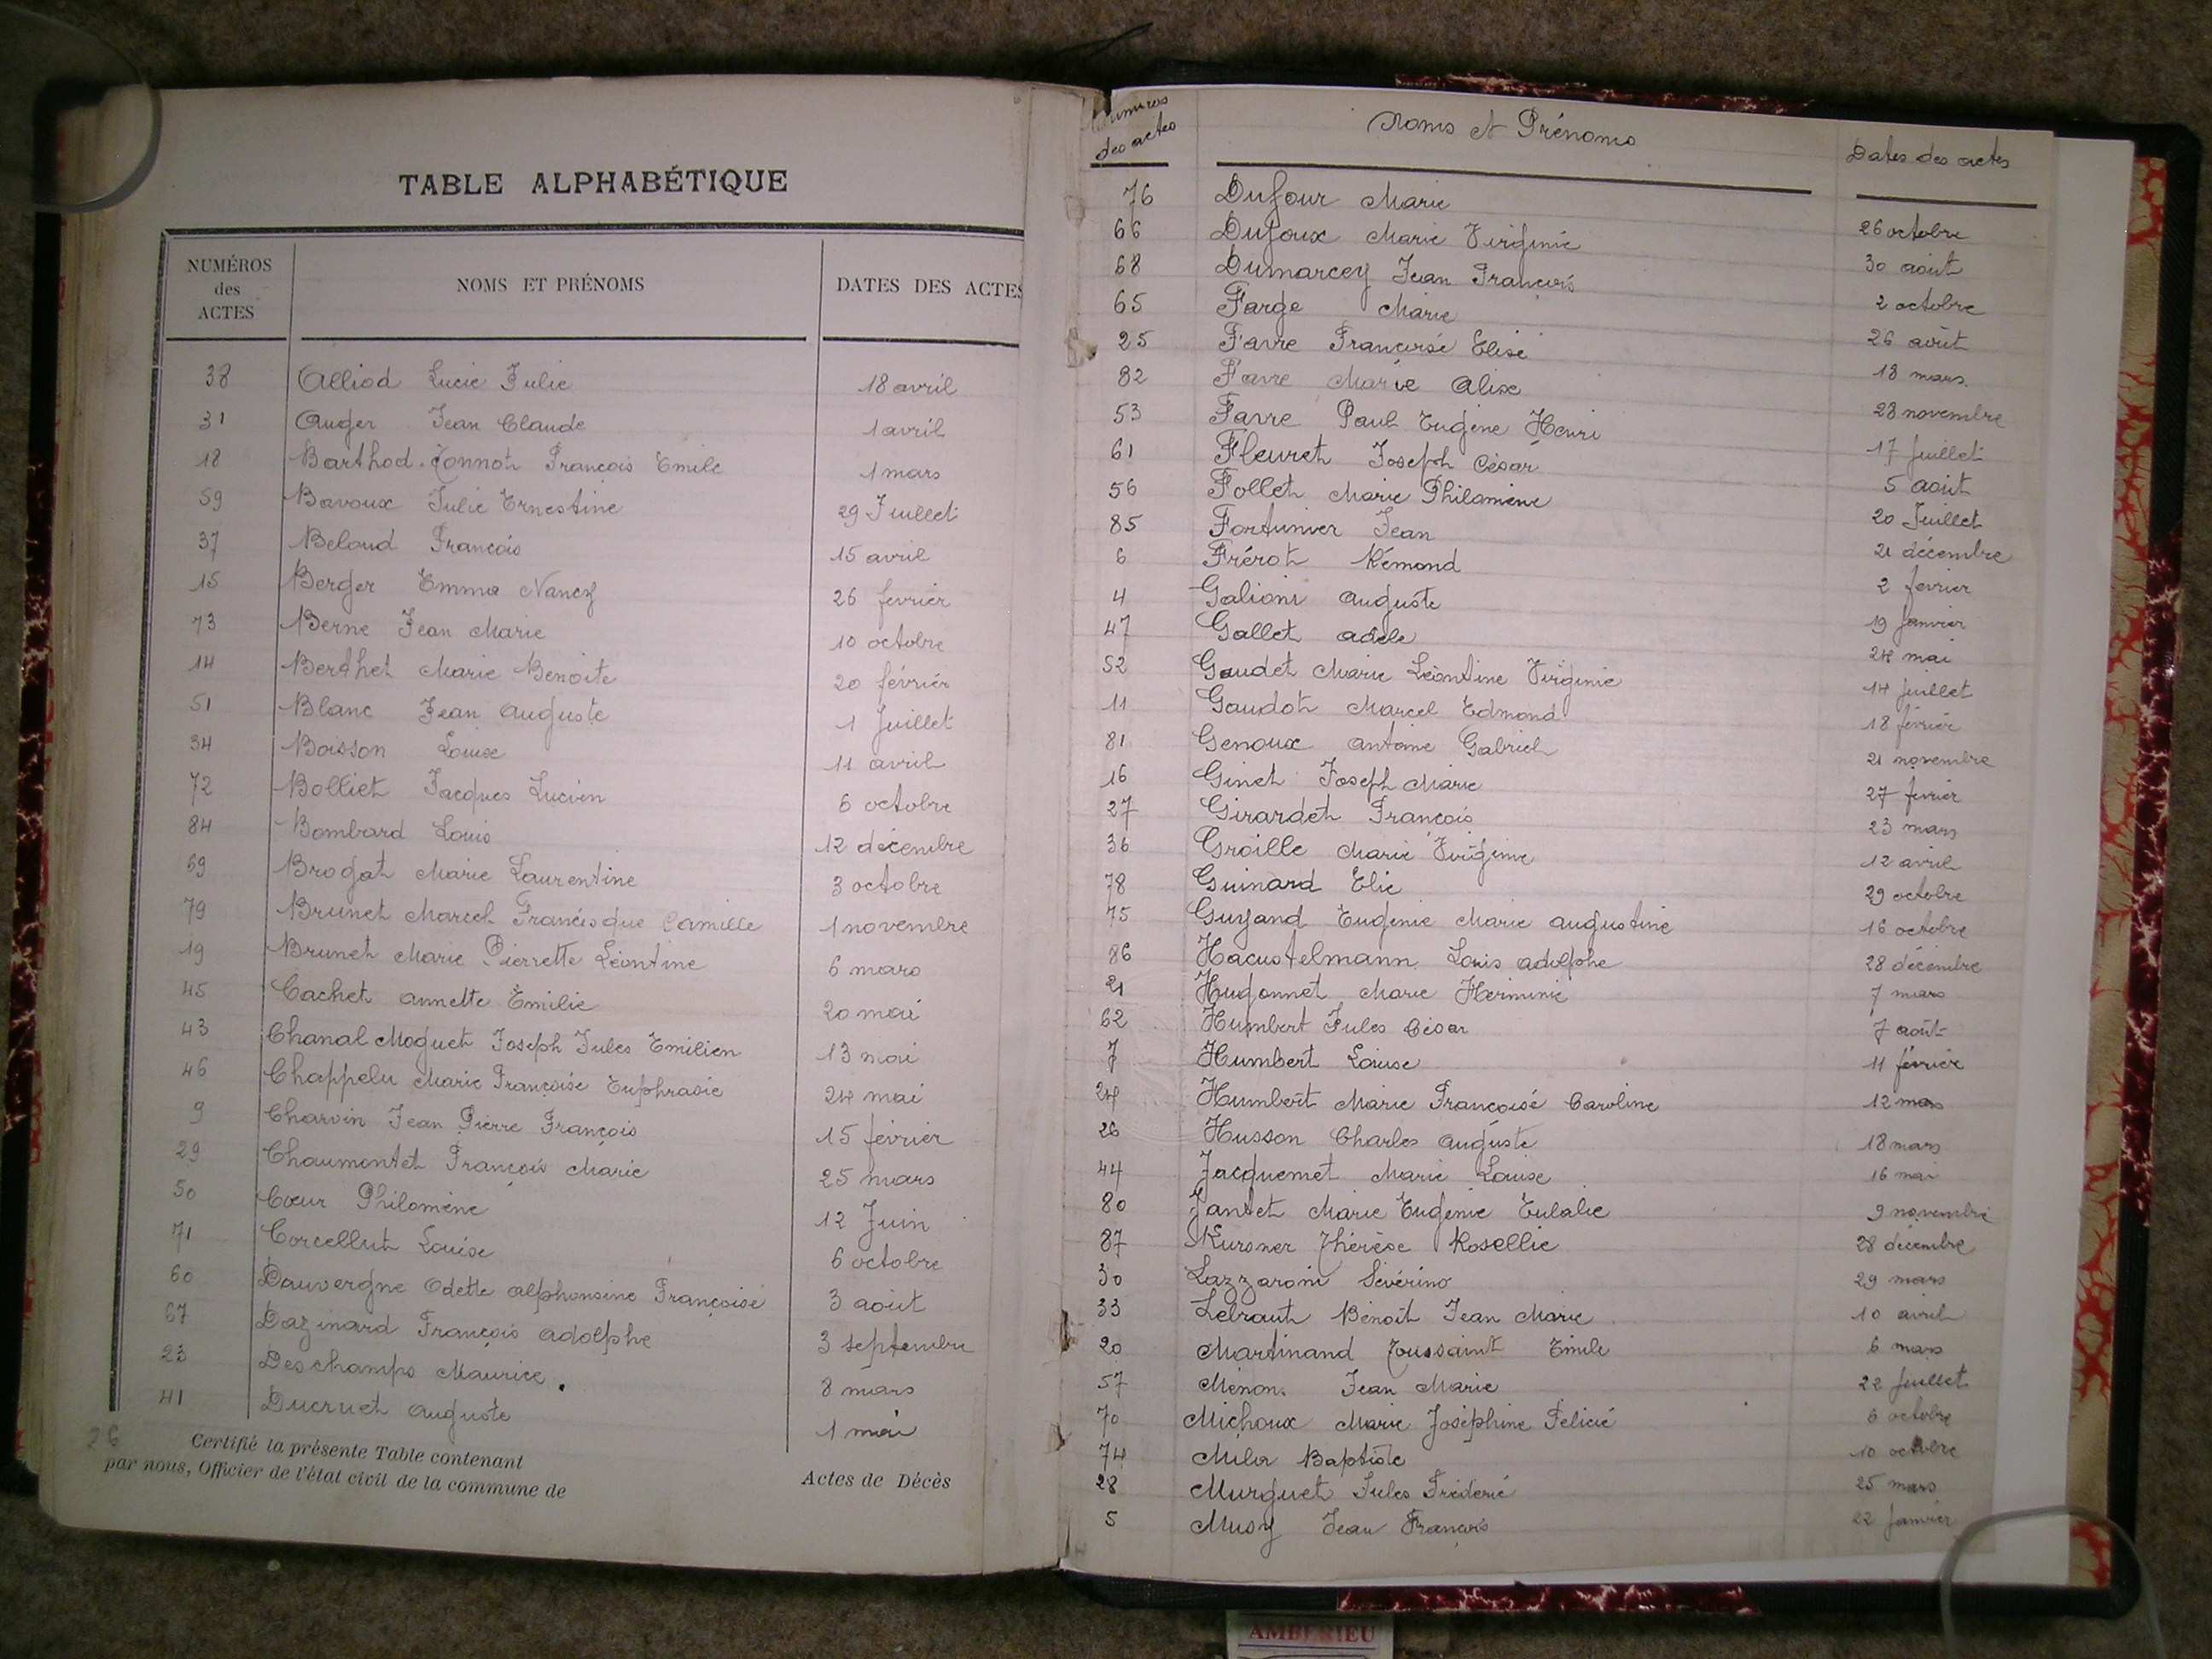 TABLE ALPHABÉTIQUE
NUMÉROS des ACTES NOMS ET PRÉNOMS DATES DES ACTES
38 Alliod Lucie Julie 18 avril
31 Auger Jean Claude 1 avril
18 Barthod-Tonnot François Emile 1 mars
59 Bavoux Julie Ernestine 29 Juillet
37 Beloud François 15 avril
15 Berger Emma Nancy 26 fevrier
73 Berne Jean Marie 10 octobre
14 Berthet Marie Benoite 20 février
51 Blanc Jean Auguste 1 Juillet
34 Boisson Louise 11 avril
72 Bolliet Jacques Lucien 6 octobre
84 Bombard Louis 12 décembre
69 Brogat Marie Laurentine 3 octobre
79 Brunet Marcel Francisque Camille 1 novembre
19 Brunet Marie Pierrette Léontine 6 mars
45 Cachet Annette Emilie 20 mai
43 Chanal Moguet Joseph Jules Emilien 13 mai
46 Chappelu Marie Françoise Euphrasie 24 mai
9 Charvin Jean Pierre François 15 février
29 Chaumontet François Marie 25 mars
50 Cœur Philomène 12 Juin
71 Corcellut Louise 6 octobre
60 Dauvergne Odette Alphonsine Françoise 3 août
67 Dazinard François Adolphe 3 septembre
23 Deschamps Maurice 8 mars
41 Ducruet Auguste 1 mai
26
Certifié la présente Table contenant Actes de Décès
par nous, Officier de l'état civil de la commune de
Numéros des actes Noms et Prénoms Dates des actes
76 Dufour Marie 26 octobre
66 Dufoux Marie Virginie 30 août
68 Dumarcey Jean François 2 octobre
65 Farge Marie 26 août
25 Favre Françoise Elise 18 mars
82 Favre Marie Alix 28 novembre
53 Favre Paul Eugène Henri 17 juillet
61 Fleuret Joseph César 5 août
56 Follet Marie Philomène 20 Juillet
85 Fortunier Jean 21 décembre
6 Frérot Rémond 2 fevrier
4 Galioni Auguste 19 janvier
47 Gallet Adèle 24 mai
52 Gaudet Marie Léontine Virginie 14 juillet
11 Gaudot Marcel Edmond 18 février
81 Genoux Antoine Gabriel 21 novembre
16 Ginet Joseph Marie 27 fevrier
27 Girardet François 23 mars
36 Groille Marie Virginie 12 avril
78 Guinard Elie 29 octobre
75 Guyand Eugenie Marie Augustine 16 octobre
86 Hacustelmann Louis Adolphe 28 décembre
21 Hugonnet Marie Herminie 7 mars
62 Humbert Jules César 7 août
7 Humbert Louise 11 février
24 Humbert Marie Françoise Caroline 12 mars
26 Husson Charles Auguste 18 mars
44 Jacquemet Marie Louise 16 mai
80 Jantet Marie Eugenie Eulalie 9 novembre
87 Kursner Thérèse Rosellie 28 décembre
30 Lazzaroni Sévérino 29 mars
33 Lebraut Benoît Jean Marie 10 avril
20 Martinand Toussaint Emile 6 mars
57 Menon Jean Marie 22 juillet
70 Michoux Marie Joséphine Félicie 6 octobre
74 Milor Baptiste 10 octobre
28 Murguet Jules Fréderic 25 mars
5 Musy Jean François 22 janvier
AMBERIEU